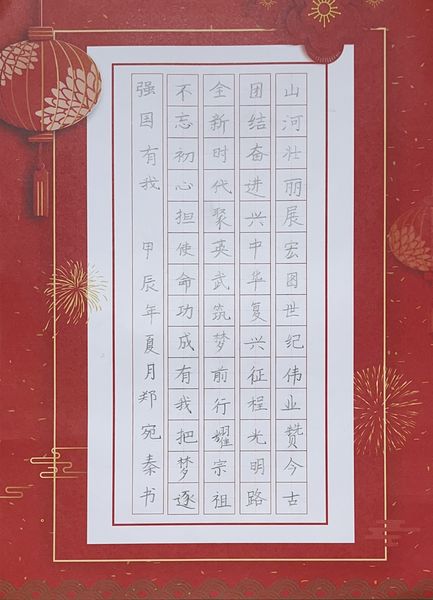 山河壮丽展宏图世纪伟业赞今古
团结奋进兴中华复兴征程光明路
全新时代聚英武筑梦前行耀宗祖
不忘初心担使命功成有我把梦逐
强国有我 甲辰年夏月郑宛秦书